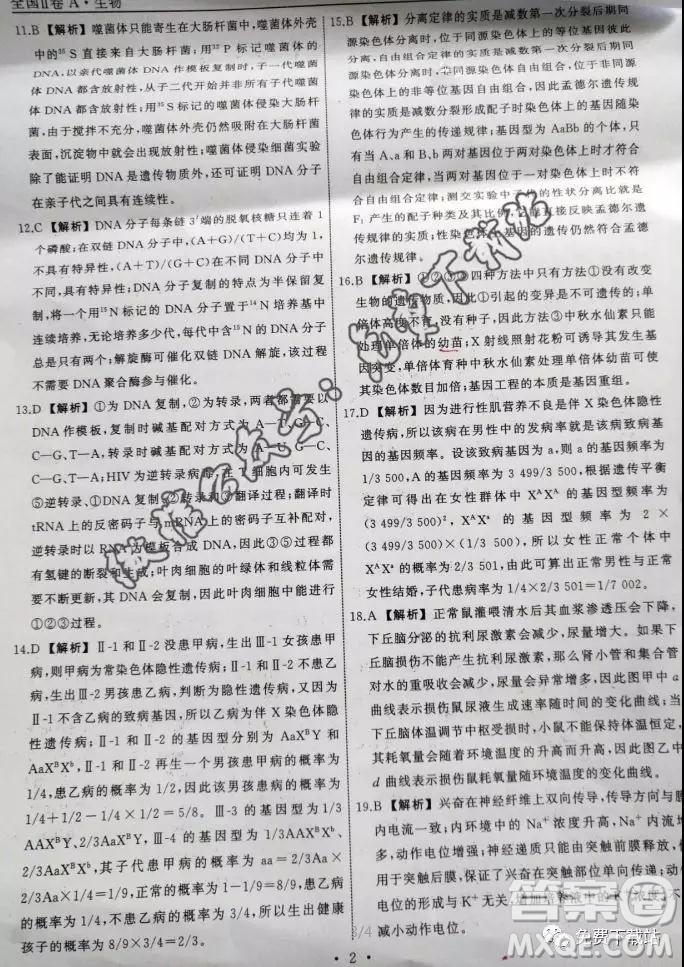 全国Ⅱ卷 A·生物
11.B 【解析】噬菌体只能寄生在大肠杆菌;噬菌体外壳
中的³⁵S直接来自大肠杆菌;用³²P标记噬菌体的
DNA,以亲代噬菌体DNA作模板复制时,子一代噬菌
体DNA都含放射性,从子二代开始并非所有子代噬菌
体DNA都含放射性;用³⁵S标记的噬菌体侵染大肠杆
菌,由于搅拌不充分,噬菌体外壳仍然吸附在大肠杆菌
表面,沉淀物中就会出现放射性;噬菌体侵染细菌实验
除了能证明DNA是遗传物质外,还可证明DNA分子
在亲子代之间具有连续性。
12.C 【解析】DNA分子每条链3′端的脱氧核糖只连着1
个磷酸;在双链DNA分子中,(A+G)/(T+C)均为1,
不具有特异性,(A+T)/(G+C)在不同DNA分子中
不同,具有特异性;DNA分子复制的特点为半保留复
制,将一个用¹⁵N标记的DNA分子置于¹⁴N培养基中
连续培养,无论培养多少代,每代中含¹⁵N的DNA分子
总是只有两个;解旋酶可催化双链DNA解旋,该过程
不需DNA聚合酶参与催化。
13.D 【解析】①为DNA复制,②为转录,两者都需要以
DNA作模板,复制时碱基配对方式为A—T、G—C、
C—G、T—A,转录时碱基配对方式为A—U、G—C、
C—G、T—A;HIV为逆转录病毒,在T细胞内可发生
⑤逆转录、①DNA复制、②转录和③翻译过程;翻译时
tRNA上的反密码子与mRNA上的密码子互补配对,
逆转录时以RNA为模板合成DNA,因此③⑤过程都
有氢键的断裂和生成;叶肉细胞的叶绿体和线粒体需
要不断更新,其DNA会复制,因此叶肉细胞中能进行
①②③过程。
14.D 【解析】Ⅱ-1和Ⅱ-2没患甲病,生出Ⅲ-1女孩患甲
病,则甲病为常染色体隐性遗传病;Ⅱ-1和Ⅱ-2不患乙
病,生出Ⅲ-2男孩患乙病,判断为隐性遗传病,又因为
Ⅱ-1不含乙病的致病基因,所以乙病为伴X染色体隐
性遗传病;Ⅱ-1和Ⅱ-2的基因型分别为AaXᴮY和
AaXᴮXᵇ,因此生出一个男孩患甲病的概率为
1/4,患乙病的概率为1/2,因此该男孩患病的概率为
1/4+1/2-1/4×1/2=5/8。Ⅲ-3的基因型为1/3
AAXᴮY、2/3AaXᴮY,Ⅲ-4的基因型为1/3AAXᴮXᵇ、
2/3AaXᴮXᵇ,其子代患甲病的概率为aa=2/3×
2/3×1/4=1/9,正常的概率为1-1/9=8/9,患乙病的
概率为1/4,不患乙病的概率为3/4,所以生出健康
孩子的概率为8/9×3/4=2/3。
15.B 【解析】分离定律的实质是减数第一次分裂后期同
源染色体分离时,位于同源染色体上的等位基因分
离,自由组合定律的实质是减数第一次分裂后期同
源染色体分离时,非同源染色体自由组合,位于非同源
染色体上的非等位基因自由组合,因此孟德尔遗传规
律的实质是减数分裂形成配子时染色体上的基因随
染色体行为产生的传递规律;基因型为AaBb的个体,只
有当A、a和B、b两对基因位于两对染色体上时才符合
自由组合定律;测交实验中子代的性状分离比就是
F₁产生的配子种类及其比例,它能直接反映孟德尔遗
传规律的实质;性染色体上基因的遗传仍然符合孟德
尔遗传规律。
16.B 【解析】①②③④四种方法中只有方法①没有改变
生物的遗传物质,因此①引起的变异是不可遗传的;单
倍体高度不育,没有种子,因此方法③中秋水仙素只能
处理单倍体的幼苗;X射线照射花粉可诱导其发生基
因突变,单倍体育种中秋水仙素处理单倍体幼苗可使
其染色体数目加倍;基因工程的本质是基因重组。
17.D 【解析】因为进行性肌营养不良是伴X染色体隐性
遗传病,所以该病在男性中的发病率就是该病致病基
因的基因频率。设该致病基因为a,则a的基因频率为
1/3 500,A的基因频率为3 499/3 500,根据遗传平衡
定律可得出在女性群体中XᴬXᴬ的基因型频率为
(3 499/3 500)²,XᴬXᵃ的基因型频率为2×
(3 499/3 500)×(1/3 500),所以女性正常个体中
XᴬXᵃ的概率为2/3 501,因此当正常男性与正常
女性结婚,子代患病率为1/4×2/3 501=1/7 002。
18.A 【解析】正常鼠灌喂清水后其血浆渗透压会下降,
下丘脑分泌的抗利尿激素会减少,尿量会增多。如果下
丘脑损伤不能产生抗利尿激素,那么肾小管和集合管
对水的重吸收会减少,尿量会增多,因此图甲中a
曲线表示损伤鼠尿液生成速率随时间的变化曲线;当
下丘脑体温调节中枢受损时,小鼠不能保持体温恒定,
其耗氧量会随着环境温度的升高而升高,因此图乙中
d曲线表示损伤鼠耗氧量随环境温度的变化曲线。
19.B 【解析】兴奋在神经纤维上双向传导,与神经纤维膜
内电流一致;内环境中的Na⁺浓度升高,Na⁺内流增
多,动作电位增强;神经递质只能由突触前膜释放,作
用于突触后膜,保证了兴奋在突触部位单向传递;动作
电位的产生与K⁺无关,增加培养液中的K⁺浓度,不
减小动作电位。
·2·
微信公众号:免费下载站
答案圈
MXQE.COM
免费下载站